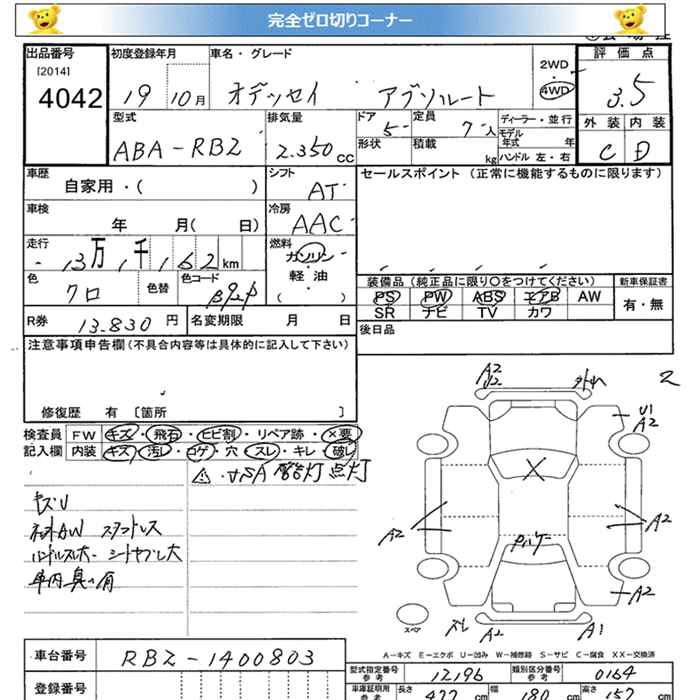 完全ゼロ切りコーナー
出品番号 初度登録年月 車名・グレード 2WD 評価点
[2014] 4042 19 10月 オデッセイ アブソルート 4WD 3.5
型式 排気量 ドア 定員 ディーラー・並行 外装 内装
ABA-RBZ 2.350cc 5 7人 モデル年式 年 C D
形状 積載 kg ハンドル 左・右
車歴 シフト セールスポイント (正常に機能するものに限ります)
自家用・( ) AT
車検 冷房
年 月( 日) AAC
走行 燃料
13万1千162km ガソリン
軽油
( )
色 色替 色コード 装備品(純正品に限り○をつけてください) 新車保証書
クロ PS PW ABS エアB AW 有・無
SR ナビ TV カワ
R券 13.830円 名変期限 月 日 後日品
注意事項申告欄(不具合内容等は具体的に記入して下さい)
修復歴 有 [箇所 ]
検査員 FW キズ・飛石・ヒビ割・リペア跡・×要
記入欄 内装 キズ・汚レ・コゲ・穴・スレ・キレ・破レ
警告灯点灯
A2 A2 A2 A2 A2 A2 A1
U1
X
スペア
A-キズ E-エクボ U-凹み W-補修跡 S-サビ C-腐食 XX-交換済
車台番号 RBZ-1400803
型式指定番号 参考 12196 類別区分番号 参考 0164
登録番号
車庫証明用 参考 長さ cm 幅 180cm 高さ cm